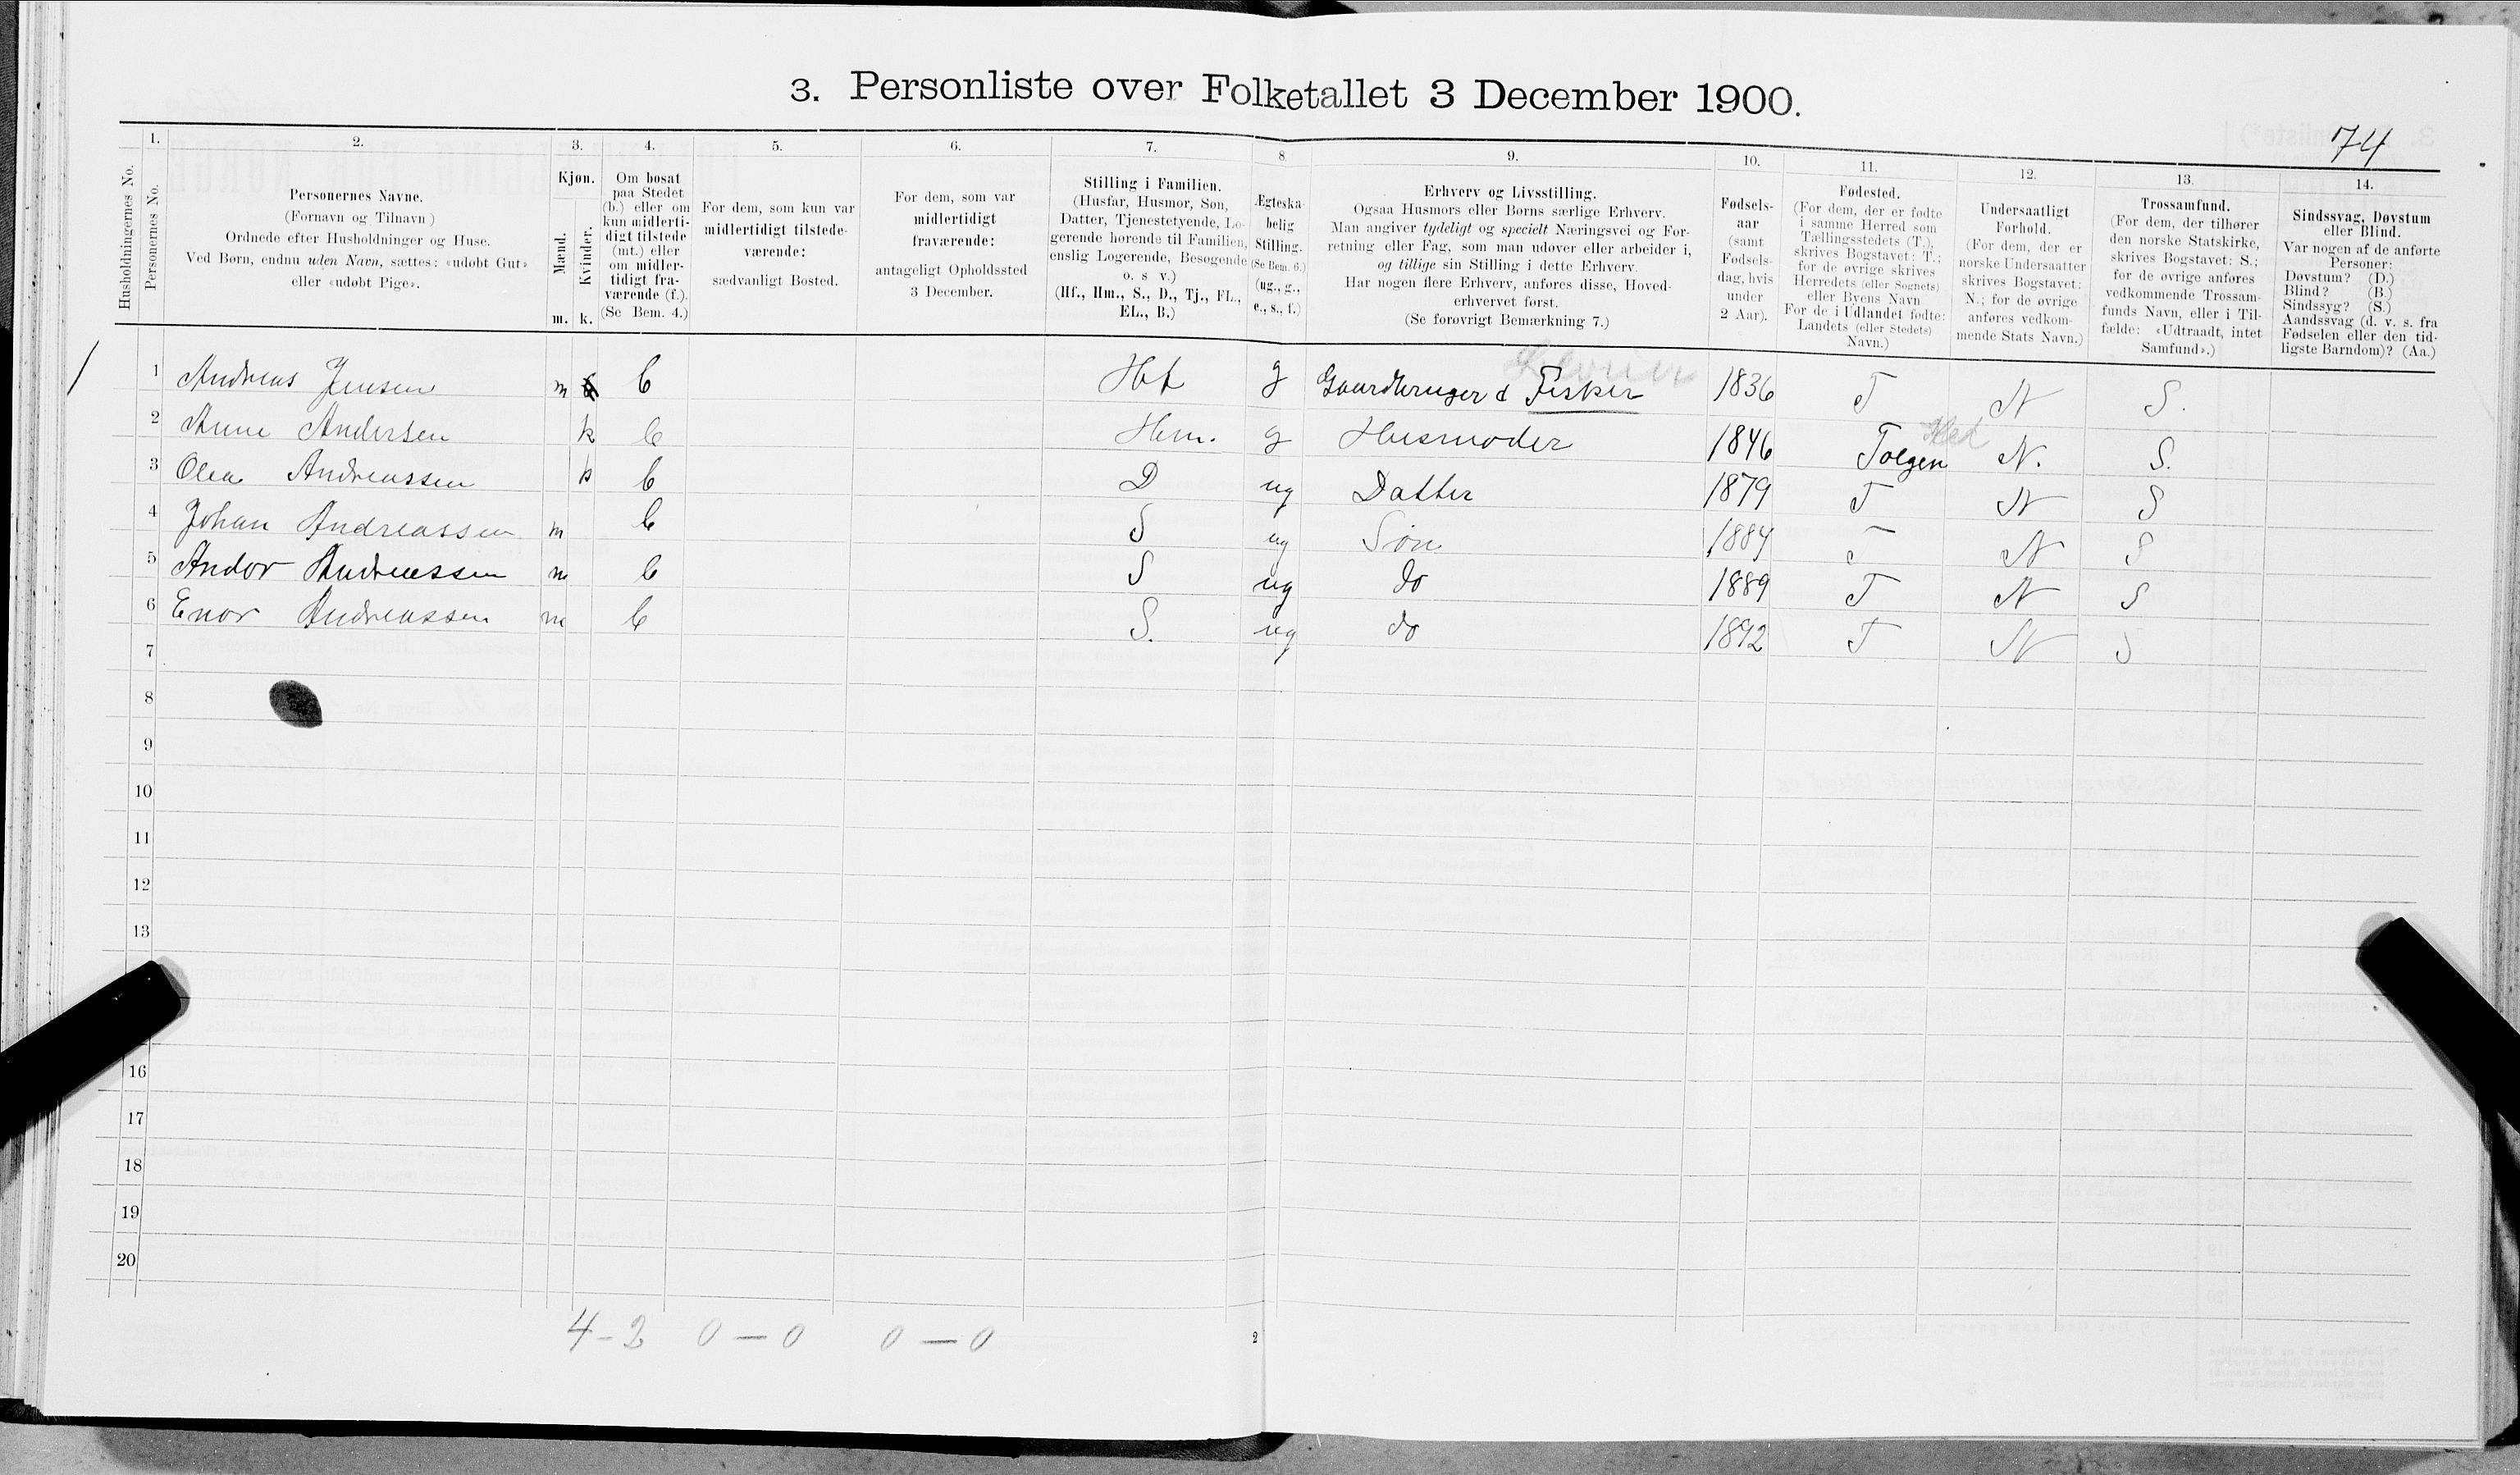 3. Personliste over Folketallet 3 December 1900.
74
Husholdningernes No.
1.
Personernes No.
2.
Personernes Navne.
(Fornavn og Tilnavn)
Ordnede efter Husholdninger og Huse.
Ved Børn, endnu uden Navn, sættes: «udøbt Gut»
eller «udøbt Pige».
3.
Kjøn.
Mænd.
Kvinder.
m.
k.
4.
Om bosat
paa Stedet
(b.) eller om
kun midlerti-
digt tilstede
(mt.) eller
om midler-
tidigt fra-
værende (f.).
(Se Bem. 4.)
5.
For dem, som kun var
midlertidigt tilstede-
værende:
sædvanligt Bosted.
6.
For dem, som var
midlertidigt
fraværende:
antageligt Opholdssted
3 December.
7.
Stilling i Familien.
(Husfar, Husmor, Søn,
Datter, Tjenestetyende, Lo-
gerende hørende til Familien,
enslig Logerende, Besøgende
o. s v.)
(Hf., Hm., S., D., Tj., FL.,
EL., B.)
8
Ægteska-
belig
Stilling.
(Se Bem. 6.)
(ug., g.,
e., s., f.)
9.
Erhverv og Livsstilling.
Ogsaa Husmors eller Børns særlige Erhverv.
Man angiver tydeligt og specielt Næringsvei og For-
retning eller Fag, som man udøver eller arbeider i,
og tillige sin Stilling i dette Erhverv.
Har nogen flere Erhverv, anføres disse, Hoved-
erhvervet først.
(Se forøvrigt Bemærkning 7.)
10.
Fødsels-
aar
(samt
Fødsels-
dag, hvis
under
2 Aar).
11.
Fødested.
(For dem, der er fødte
i samme Herred som
Tællingsstedets (T.),
skrives Bogstavet: T.;
for de øvrige skrives
Herredets (eller Sognets)
eller Byens Navn
For de i Udlandet fødte:
Landets (eller Stedets)
Navn.)
12.
Undersaatligt
Forhold.
(For dem, der er
norske Undersaatter
skrives Bogstavet:
N.; for de øvrige
anføres vedkom-
mende Stats Navn.)
13.
Trossamfund.
(For dem, der tilhører
den norske Statskirke,
skrives Bogstavet: S.;
for de øvrige anføres
vedkommende Trossam-
funds Navn, eller i Til-
fælde: «Udtraadt, intet
Samfund».)
14.
Sindssvag, Døvstum
eller Blind.
Var nogen af de anførte
Personer:
Døvstum? (D.)
Blind? (B.)
Sindssyg? (S.)
Aandssvag (d. v. s. fra
Fødselen eller den tid-
ligste Barndom)? (Aa.)
1 Andreas Jensen m b Hf g Gaardbruger & Fisker 1836 T N S.
2 Anne Andersen k b Hm. g Husmoder 1846 Tolgen N. S.
3 Olea Andreassen k b D ug Datter 1879 T N S
4 Johan Andreassen m b S ug Søn 1884 T N S
5 Andor Andreassen m b S ug do 1889 T N S
6 Enor Andreassen m b S. ug do 1892 T N S
7
8
9
10
11
12
13
16
17
18
19
20
4-2 0-0 0-0
2